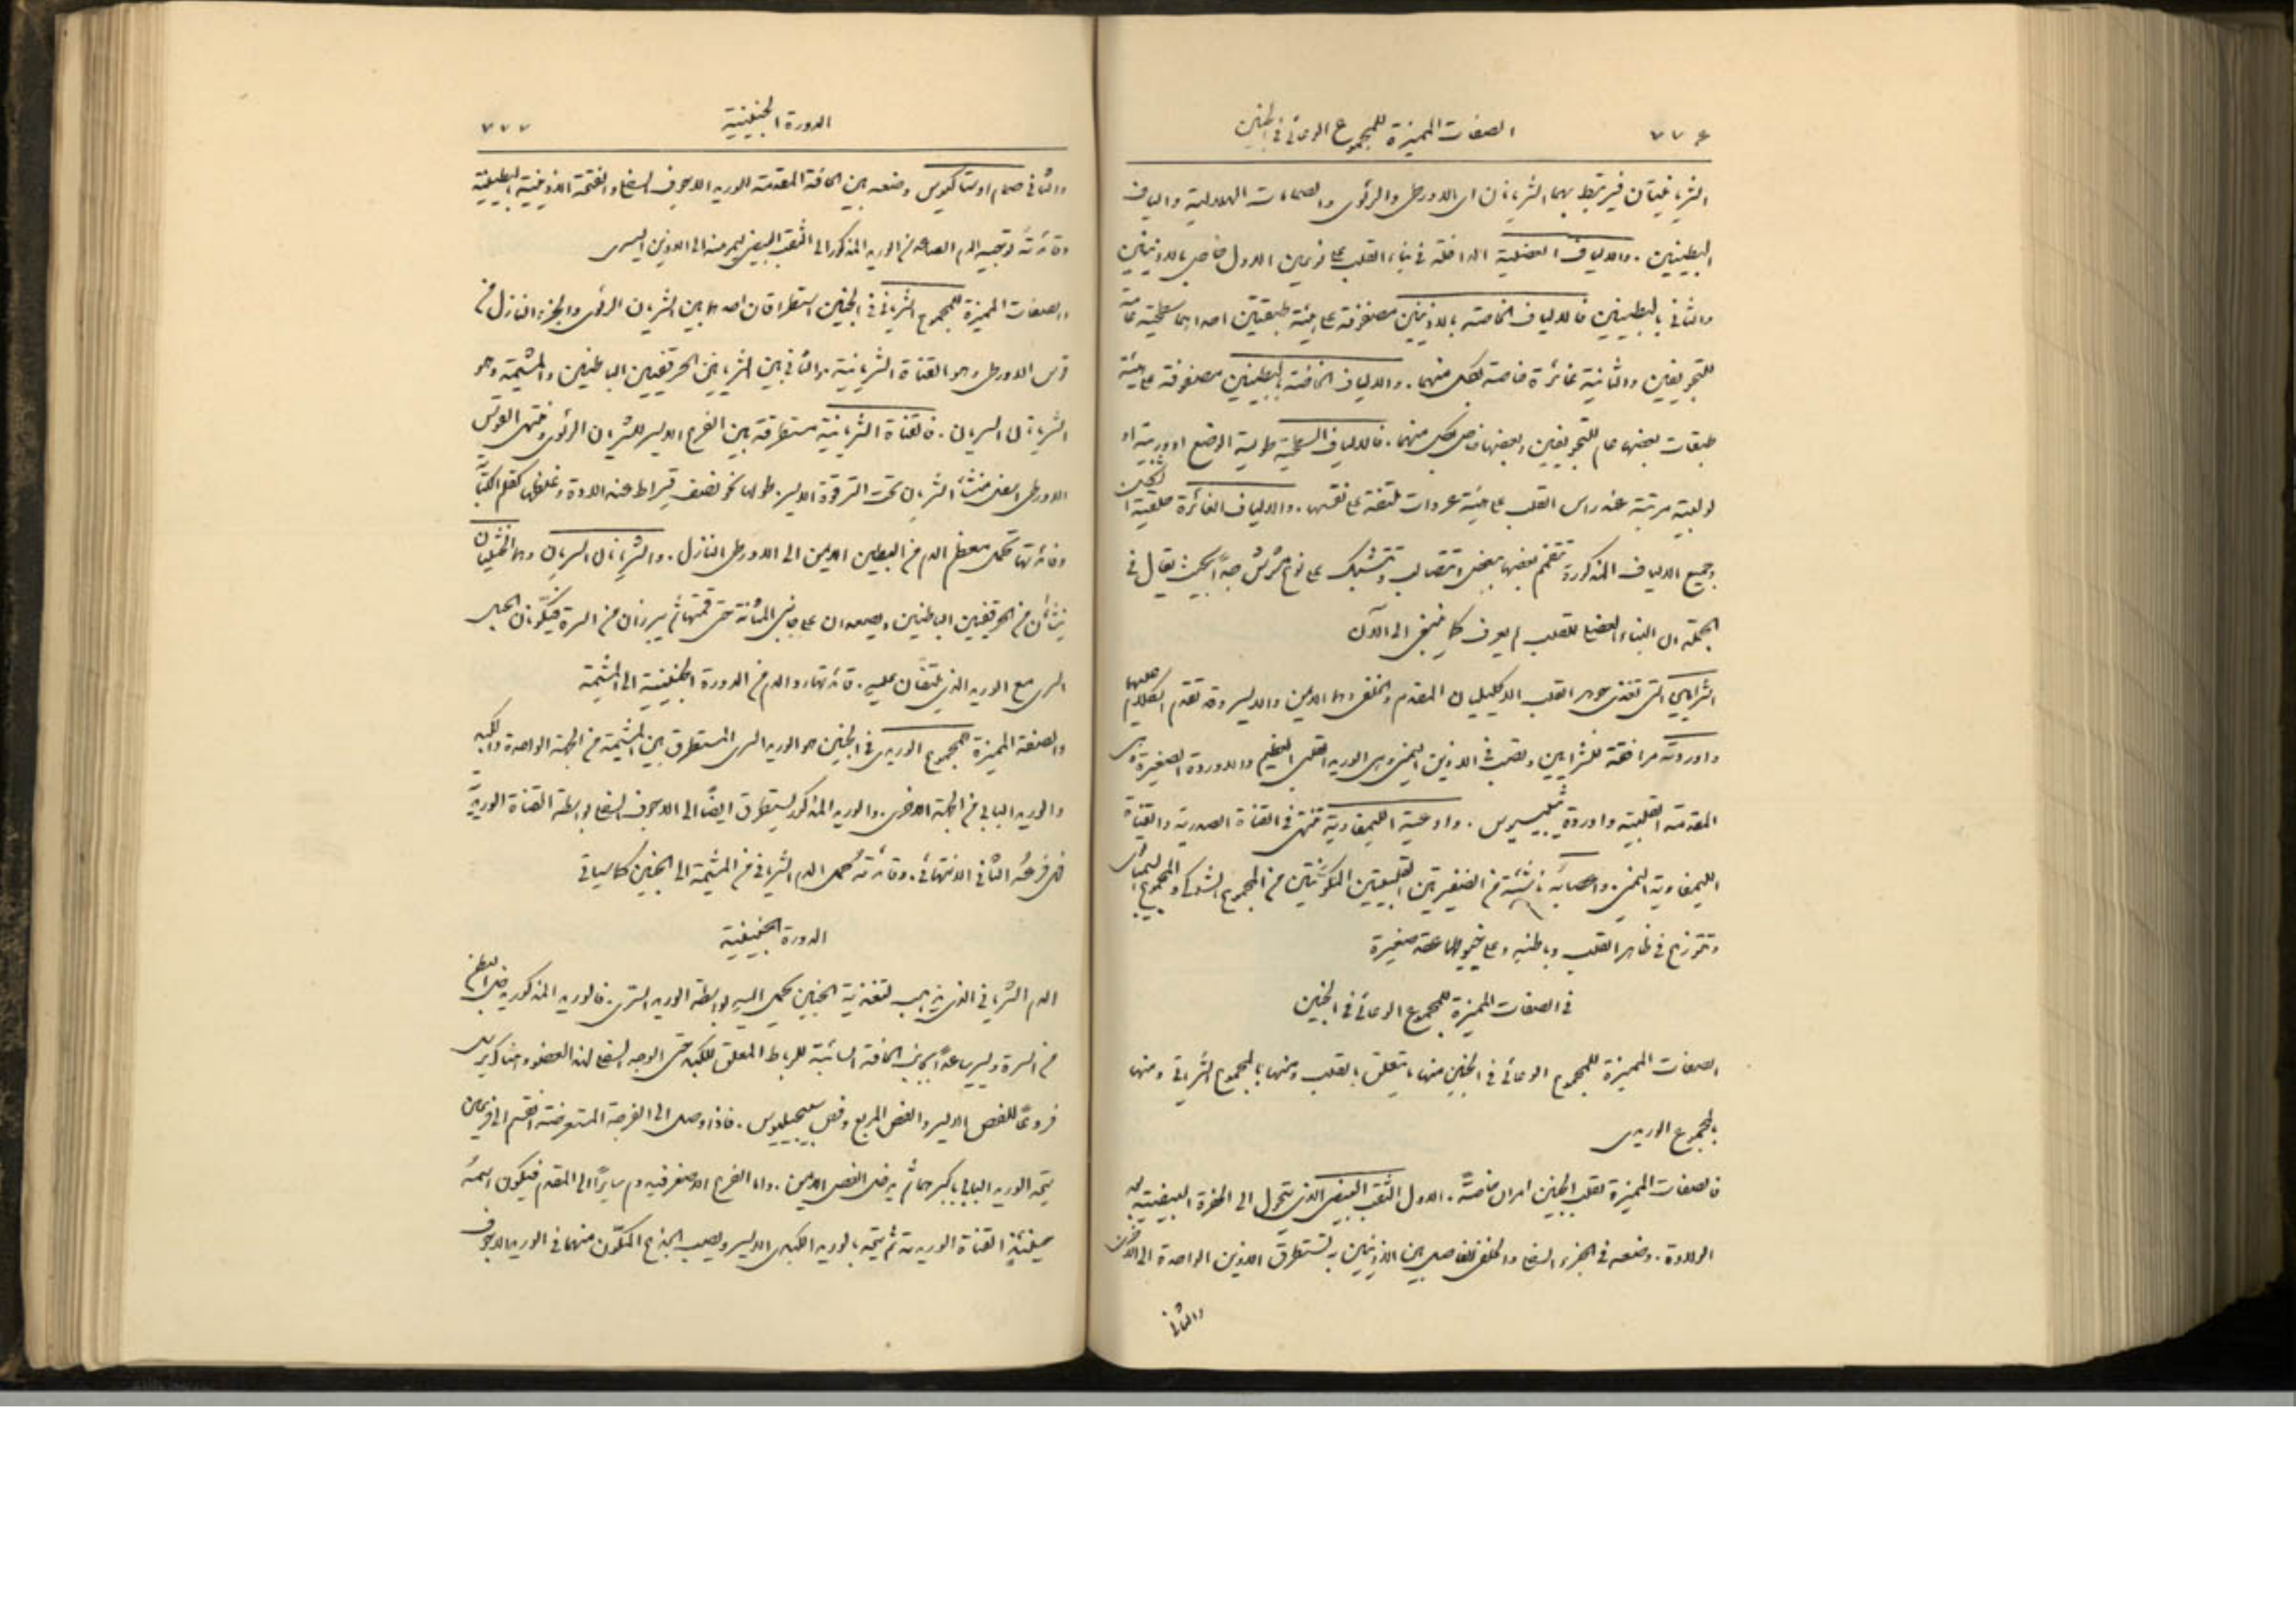 ٧٧٦ الصفات المميزة للمجموع الوعائي في الجنين
الشريانيتان فيرتبط بهما الشريانان اي الاورطي والرئوي والصمامات الهلالية والياف
البطينين. والالياف العضلية الداخلة في بناء القلب على نوعين الاول خاص بالاذينين
والثاني بالبطينين فالالياف الخاصة بالاذينين مصفوفة على هيئة طبقتين احداهما سطحية عامة
للتجويفين والثانية غائرة خاصة بكل منهما. والالياف الخاصة بالبطينين مصفوفة على هيئة
طبقات بعضها عام للتجويفين وبعضها خاص بكل منهما. فالالياف السطحية طولية الوضع او وربية او
لولبية مرتبة عند راس القلب على هيئة عروات ملتفة على نفسها. والالياف الغائرة حلقية التحن
وجميع الالياف المذكورة تنضم بعضها ببعض وتتصالب وتتشبك على نوع مشوش جدًا بحيث يقال في
الجملة ان البناء العضلي للقلب لم يعرف كما ينبغي الى الآن
الشرايين التي تغذي جوهر القلب الاكليليان المقدم والخلفي وهما الايمن والايسر وقد تقدم الكلام عليهما
واوردته مرافقة للشرايين وتصب في الاذين اليمنى وهي الوريد القلبي العظيم والاوردة الصغيرة وهي
المقدمة القلبية واوردة ثيبيسيوس. واوعيته الليمفاوية تنتهي في القناة الصدرية والقناة
الليمفاوية اليمنى. واعصابه ناشئة من الضفيرتين القلبيتين المكوّنتين من المجموع الشوكي والمجموع السيمباثي
وتتوزع في ظاهر القلب وباطنه وعلى خيوطها عقد صغيرة
في الصفات المميزة للمجموع الوعائي في الجنين
الصفات المميزة للمجموع الوعائي في الجنين منها ما يتعلق بالقلب ومنها بالمجموع الشرياني ومنها
بالمجموع الوريدي
فالصفات المميزة لقلب الجنين امران خاصةً. الاول الثقب البيضي الذي يتحول الى الحفرة البيضية بعد
الولادة. وضعه في الجزء السفلي والخلفي للفاصل بين الاذينين به تستطرق الاذين الواحدة الى الاخرى
والثاني
الدورة الجنينية ٧٧٧
والثاني صمام اوستاكيوس وضعه بين الحافة المقدمة للوريد الاجوف السفلي والفتحة الاذينية البطينية
وفائدته توجيه الدم الصاعد من الوريد المذكور الى الثقب البيضي ليمر منه الى الاذين اليسرى
والصفات المميزة للمجموع الشرياني في الجنين استطراقان احدهما بين الشريان الرئوي والجزء النازل من
قوس الاورطي وهو القناة الشريانية والثاني بين الشريانين الحرقفيين الباطنيين والمشيمة وهو
الشريانان السريان. فالقناة الشريانية مستطرقة بين الفرع الايسر للشريان الرئوي ومنتهى القوس
الاورطي اسفل منشأ الشريان تحت الترقوة الايسر. طولها نحو نصف قيراط عند الولادة وغلظها كقلم الكتّاب
وفائدتها تحمل معظم الدم من البطين الايمن الى الاورطي النازل. والشريانان السريان وهما الخثليان
ينشأن من الحرقفيين الباطنيين ويصعدان على جانبي المثانة حتى قمتها ثم يبرزان من السرة فيكّونان الحبل
السري مع الوريد الذي يلتفان عليه. فائدتهما رد الدم من الدورة الجنينية الى المشيمة
والصفة المميزة للمجموع الوريدي في الجنين هو الوريد السري المستطرق بين المشيمة من الجهة الواحدة والكبد
والوريد البابي من الجهة الاخرى. والوريد المذكور يستطرق ايضًا الى الاجوف السفلي بواسطة القناة الوريدية
فرعُه الثاني الانتهائي. وفائدته حمل الدم الشرياني من المشيمة الى الجنين كما سيأتي
الدورة الجنينية
الدم الشرياني الذي يذهب لتغذية الجنين يحمل اليه بواسطة الوريد السري. فالوريد المذكور يدخل البطن
من السرة ويسير صاعدًا بجانب الحافة السائبة للرباط المعلق للكبد حتى الوجه السفلي لهذا العضو وهناك يرسل
فروعًا للفص الايسر والفص المربع وفص سبيجيليوس. فاذا وصل الى الفرجة المستعرضة انقسم الى فرعين
يتحد الوريد البابي باكبرهما ثم يدخل الفص الايمن. واما الفرع الاصغر فيدوم سايرًا الى المقدم فيكون اسمهُ
حينئذٍ القناة الوريدية ثم يتحد بالوريد الكبدي الايسر ويصب الجذع المتكّون منهما في الوريد الاجوف